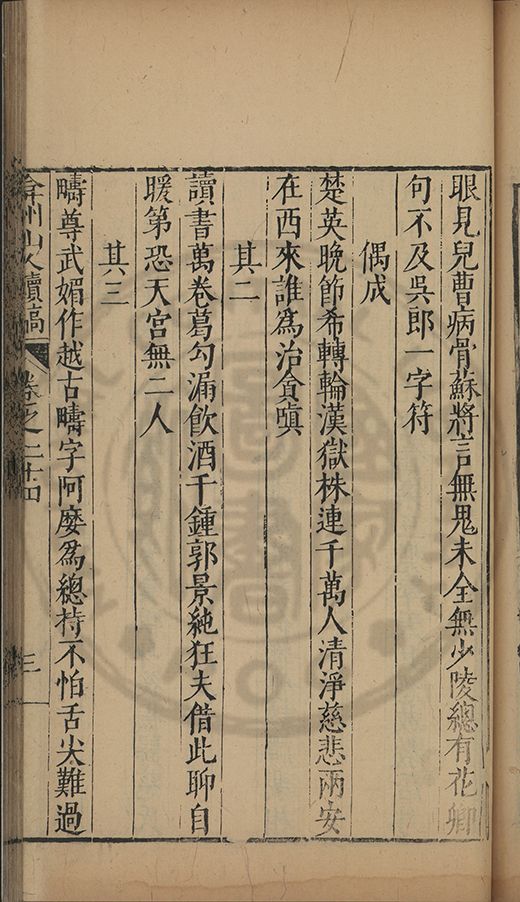 眼見兒曹病骨蘇將言無鬼未全無少陵總有花卿
句不及吳郎一字符
偶成
楚英晚節希轉輪漢獄株連千萬人清淨慈悲兩安
在西來誰爲治貪嗔
其二
讀書萬卷葛勾漏飲酒千鍾郭景純狂夫借此聊自
暖第恐天宮無二人
其三
疇尊武媚作越古疇字阿麼爲總持不怕舌尖難過
弇州山人續稿 卷之二十四 三